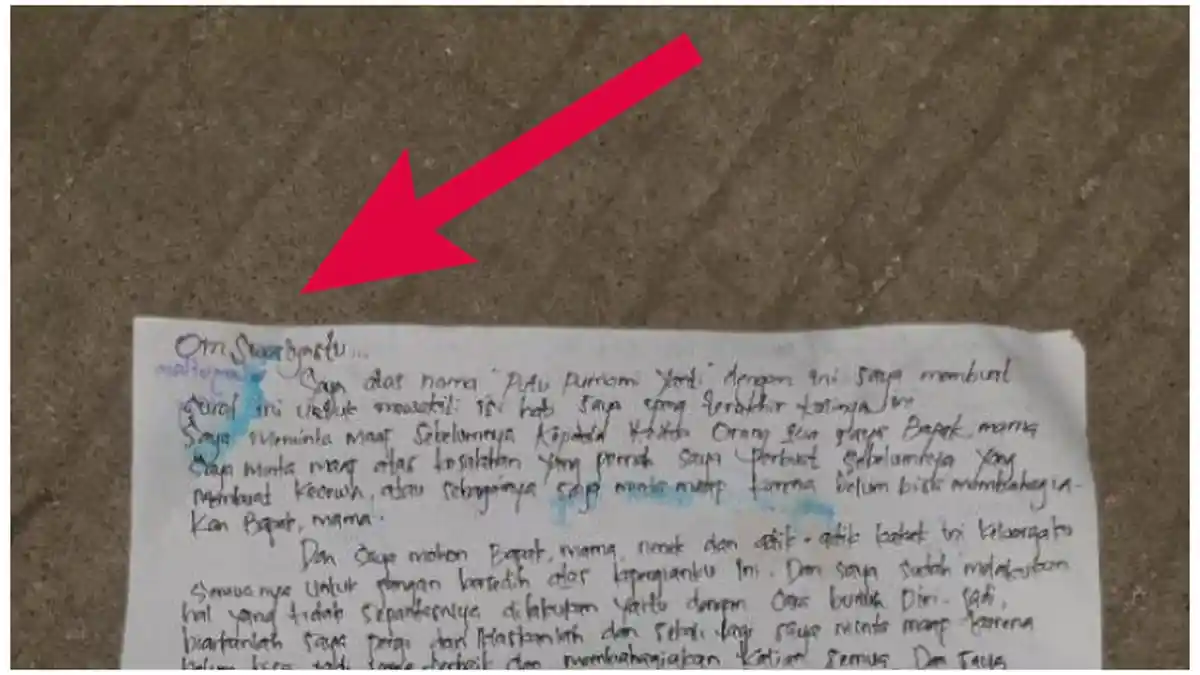 Om Swastyastu...
Saya atas nama "Putu Purnami Yanti" dengan ini saya membuat
surat ini untuk mewakili isi hati saya yang terakhir kalinya
Saya meminta maaf sebelumnya kepada kedua orang tua saya Bapak, mama
Saya minta maaf atas kesalahan yang pernah saya perbuat sebelumnya yang
membuat kecewa, atau sebagainya saya minta maaf karena belum bisa membahagia-
kan Bapak, mama.
Dan saya mohon Bapak, mama, nenek dan adik-adik kakak ini keluargaku
Semuanya untuk jangan bersedih atas kepergianku ini. Dan saya sudah melakukan
hal yang tidak sepantasnya dilakukan yaitu dengan cara bunuh Diri. Jadi,
biarkanlah saya pergi dan ikhlaskanlah dan sekali lagi saya minta maaf karena
belum bisa jadi terbaik dan membahagiakan kalian semua. Dan saya